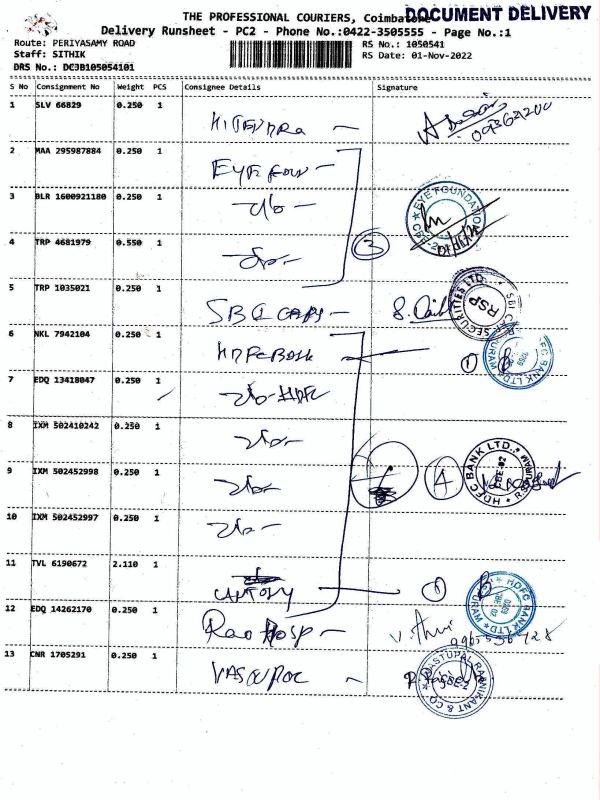 THE PROFESSIONAL COURIERS, Coimbatore
DOCUMENT DELIVERY
Delivery Runsheet - PC2 - Phone No.:0422-3505555 - Page No.:1
Route: PERIYASAMY ROAD
RS No.: 1050541
Staff: SITHIK
RS Date: 01-Nov-2022
DRS No.: DC3B105054101
S No Consignment No Weight PCS Consignee Details Signature
1 SLV 66829 0.250 1
2 MAA 295987884 0.250 1
3 BLR 1600921180 0.250 1
EYE FOUNDATION
4 TRP 4681979 0.550 1
3
5 TRP 1035021 0.250 1 SBI CAPS
SECURITIES LTD. RSP
6 NKL 7942104 0.250 1 1 B
HDFC BANK LTD
7 EDQ 13418047 0.250 1 HDFC
8 IXM 502410242 0.250 1
9 IXM 502452998 0.250 1 4
HDFC BANK LTD. CBE-02 R.S.PURAM
10 IXM 502452997 0.250 1
11 TVL 6190672 2.110 1 1 B
HDFC BANK LTD
12 EDQ 14262170 0.250 1 Rao Hosp
13 CNR 1705291 0.250 1
VASTUPAL RAJNIKANT & CO